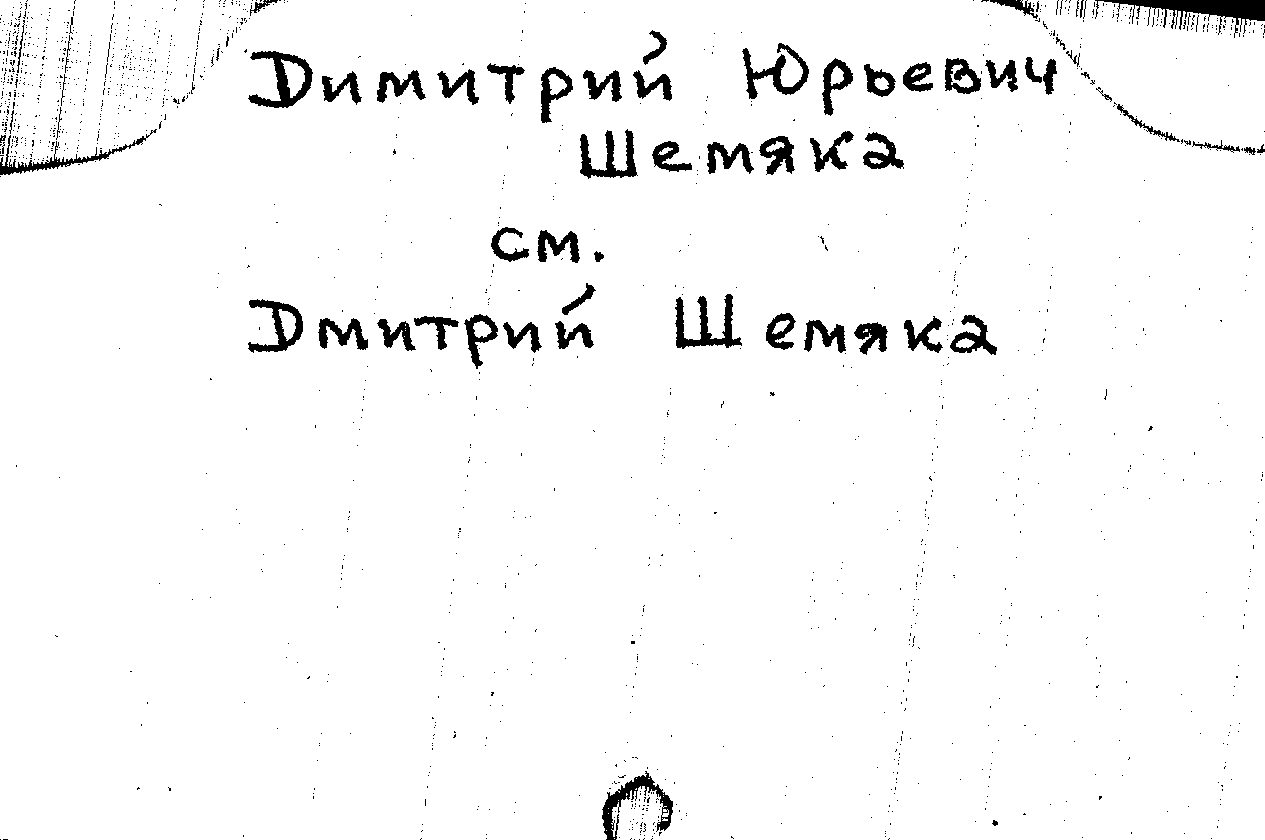 Димитрий Юрьевич
Шемяка
см.
Дмитрий Шемяка